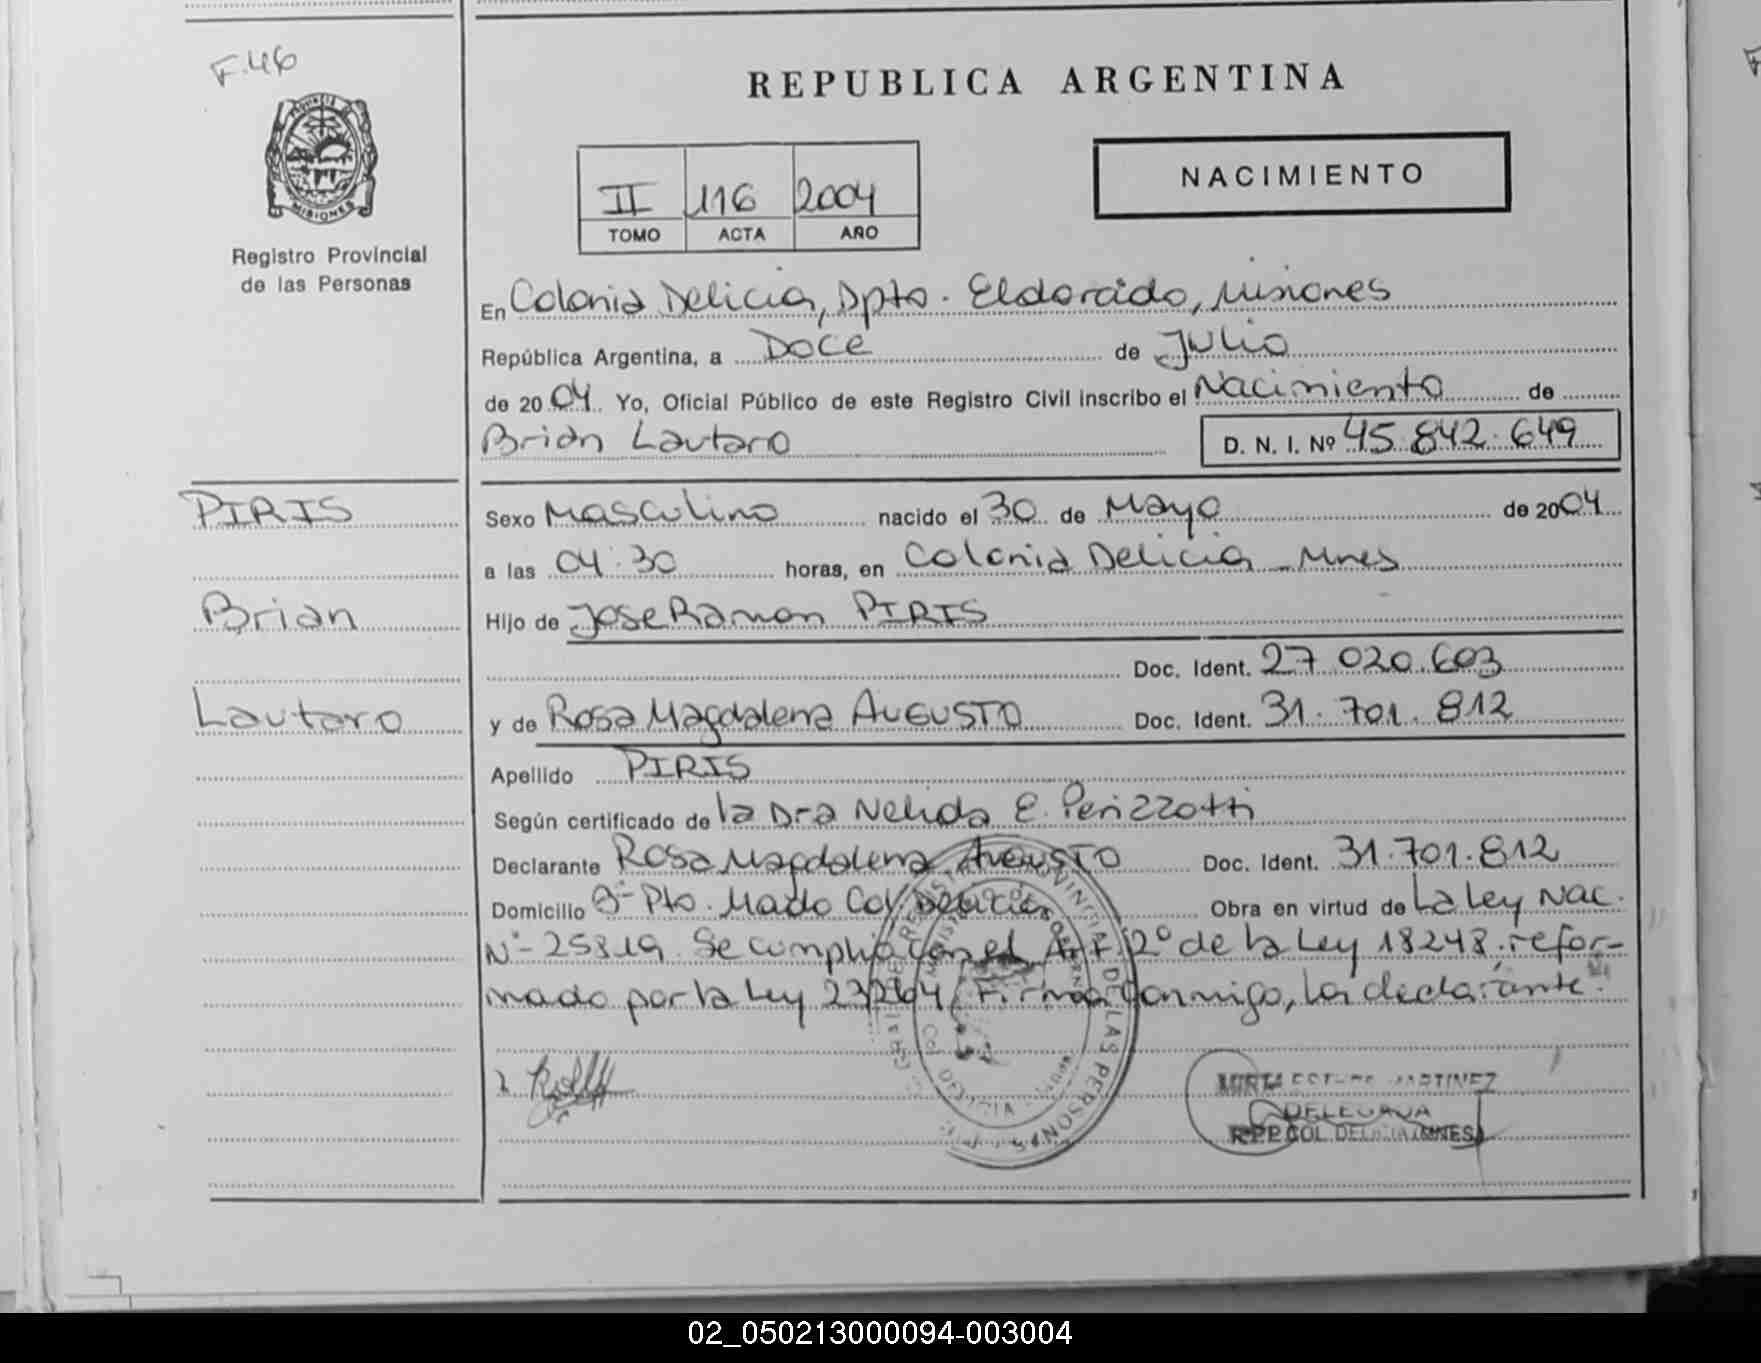 F.46
MISIONES
Registro Provincial
de las Personas
REPUBLICA ARGENTINA
II 116 2004
TOMO ACTA AÑO
NACIMIENTO
En Colonia Delicia, Dpto. Eldorado, Misiones
República Argentina, a Doce de Julio
de 2004 Yo, Oficial Público de este Registro Civil inscribo el Nacimiento de
Brian Lautaro D. N. I. Nº 45.842.649
PIRIS
Brian
Lautaro
Sexo Masculino nacido el 30 de Mayo de 2004
a las 04:30 horas, en Colonia Delicia - Mnes
Hijo de Jose Ramon PIRIS
Doc. Ident. 27.020.603
y de Rosa Magdalena AUGUSTO Doc. Ident. 31.701.812
Apellido PIRIS
Según certificado de la Dra Nelida E. Perizzotti
Declarante Rosa Magdalena AUGUSTO Doc. Ident. 31.701.812
Domicilio Bº Pto. Mado Col Delicia Obra en virtud de La Ley Nac.
Nº 25819. Se cumplió con el Art. 2º de la Ley 18248, refor-
mado por la Ley 23264. Firma conmigo, la declarante.
DE LAS PERSONAS
MIRTA MARTINEZ
DELEGADA
COL. DELICIA (MNES)
02_050213000094-003004